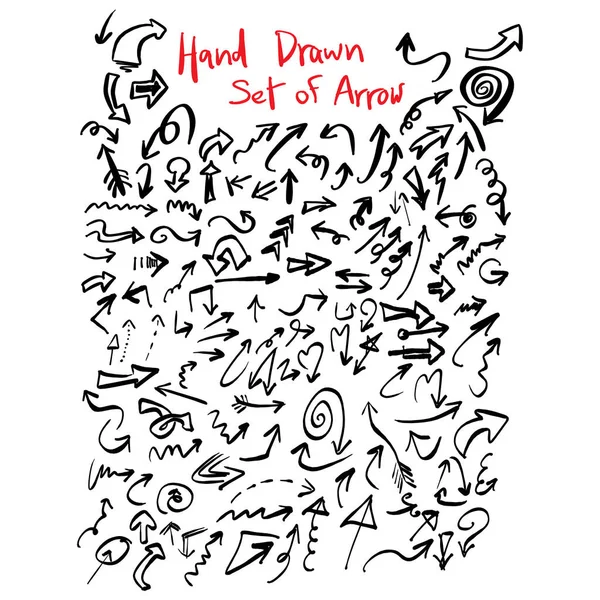 Hand Drawn
Set of Arrow